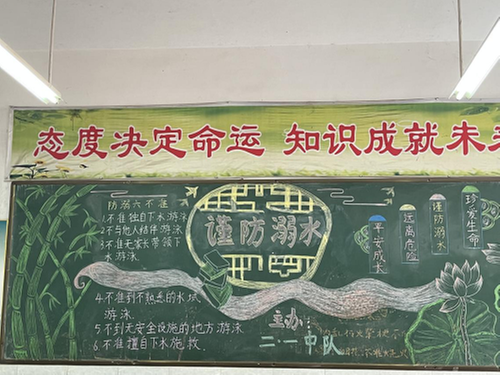 态度决定命运 知识成就未来
防溺六不准
1.不准独自下水游泳
2.不与他人结伴游泳
3.不准无家长带领下
水游泳
4.不准到不熟悉的水域
游泳
5.不到无安全设施的地方游泳
6.不准擅自下水施救
谨防溺水
平安成长
远离危险
谨防溺水
珍爱生命
主办:
二·一中队